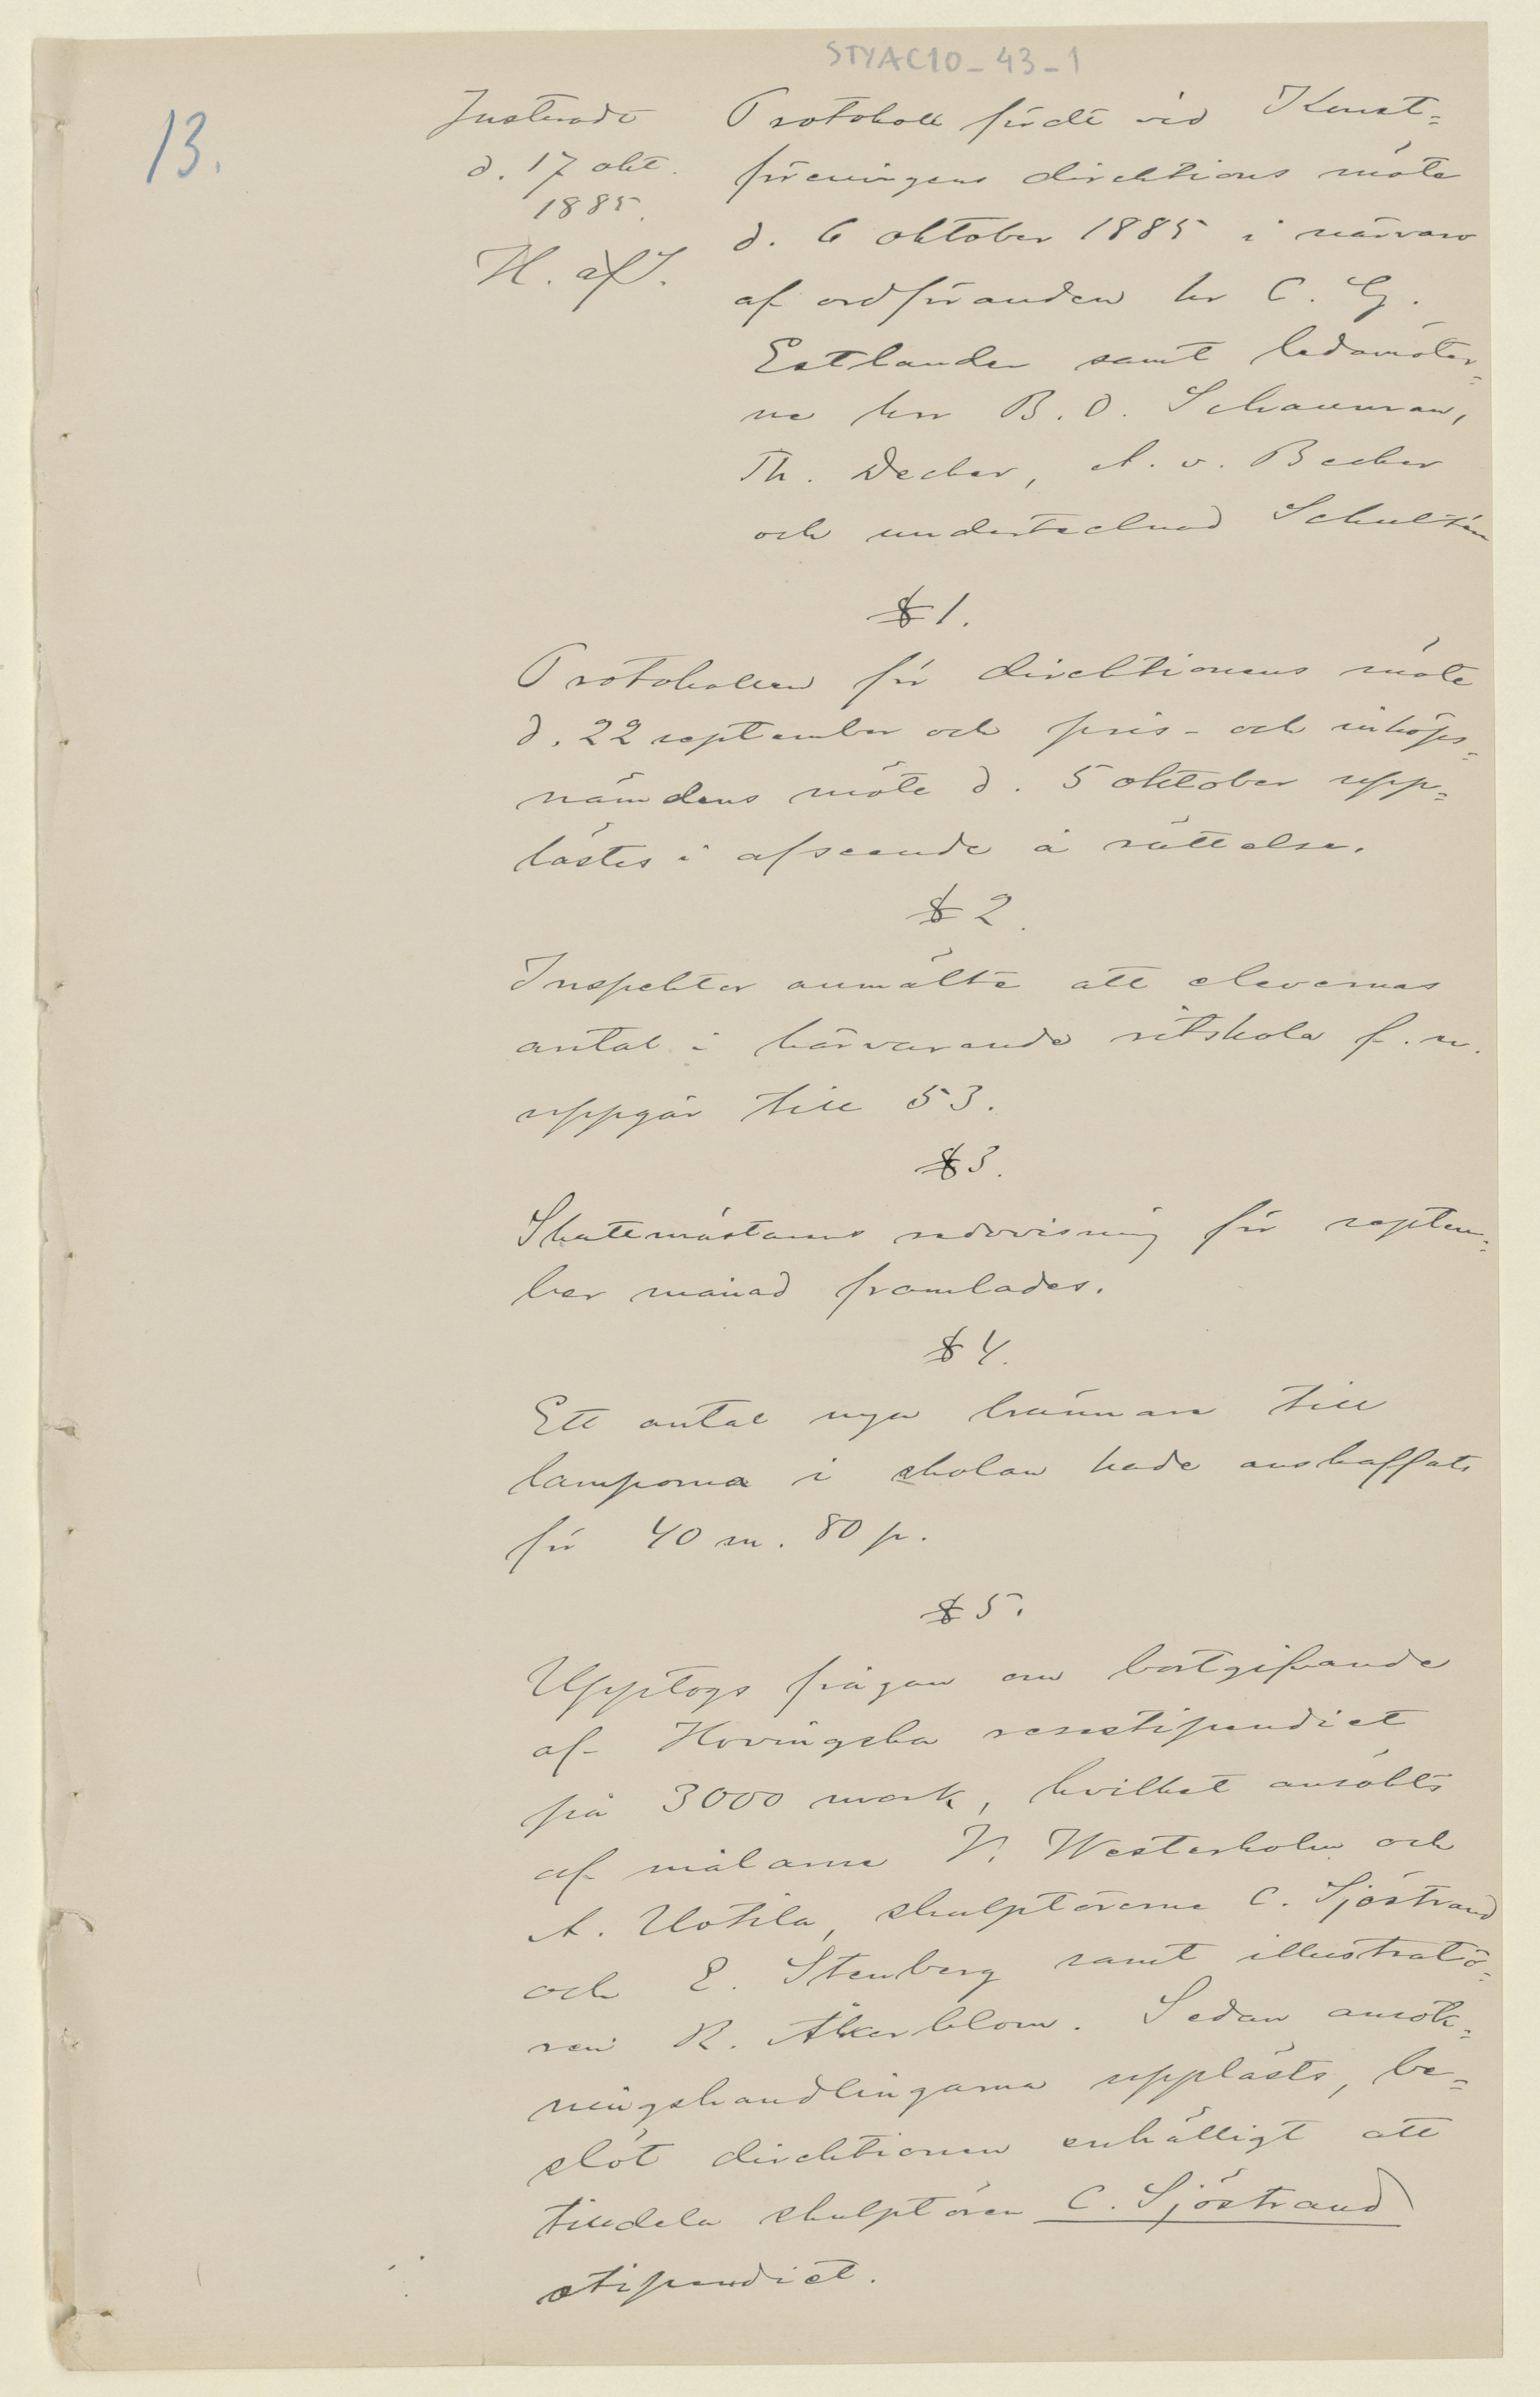 STYAC10-43-1
13.
Justerade
d. 17 okt.
1885.
H. af S.
Protokoll fördt vid Konst-
föreningens direktions möte
d. 6 oktober 1885 i närvaro
af ordföranden hr C. G.
Estlander samt ledamöter-
ne hrr B. O. Schauman,
Th. Decker, A. v. Becker
och undertecknad Schultén
§ 1.
Protokollen för direktionens möte
d. 22 september och pris- och inköps-
nämdens möte d. 5 oktober upp-
lästes i afseende å rättelse.
§ 2.
Inspektor anmälte att elevernas
antal i härvarande ritskola f. n.
uppgår till 53.
§ 3.
Skattmästarens redovisning för septem-
ber månad framlades.
§ 4.
Ett antal nya brännare till
lamporna i skolan hade anskaffats
för 40 m. 80 p.
§ 5.
Upptogs frågan om bortgifvande
af Hovingska resestipendiet
på 3000 mark, hvilket ansökts
af målarne V. Westerholm och
A. Uotila, skulptörerne C. Sjöstrand
och E. Stenberg samt illustratö-
ren R. Åkerblom. Sedan ansök-
ningshandlingarna upplästs, be-
slöt direktionen enhälligt att
tilldela skulptören C. Sjöstrand
stipendiet.